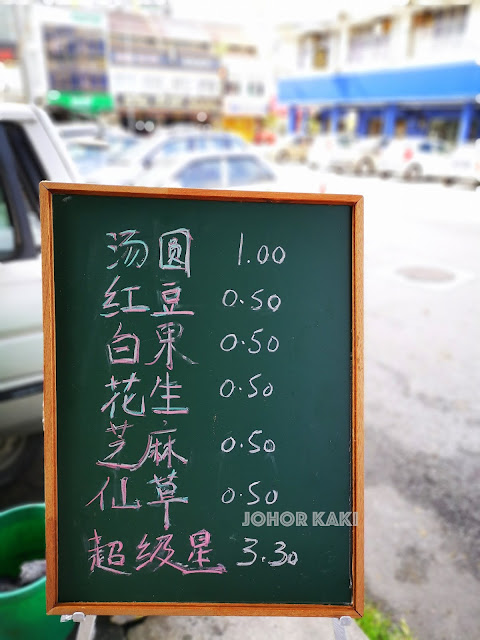 汤圆 1.00
红豆 0.50
白果 0.50
花生 0.50
芝麻 0.50
仙草 0.50
JOHOR KAKI
超级星 3.30